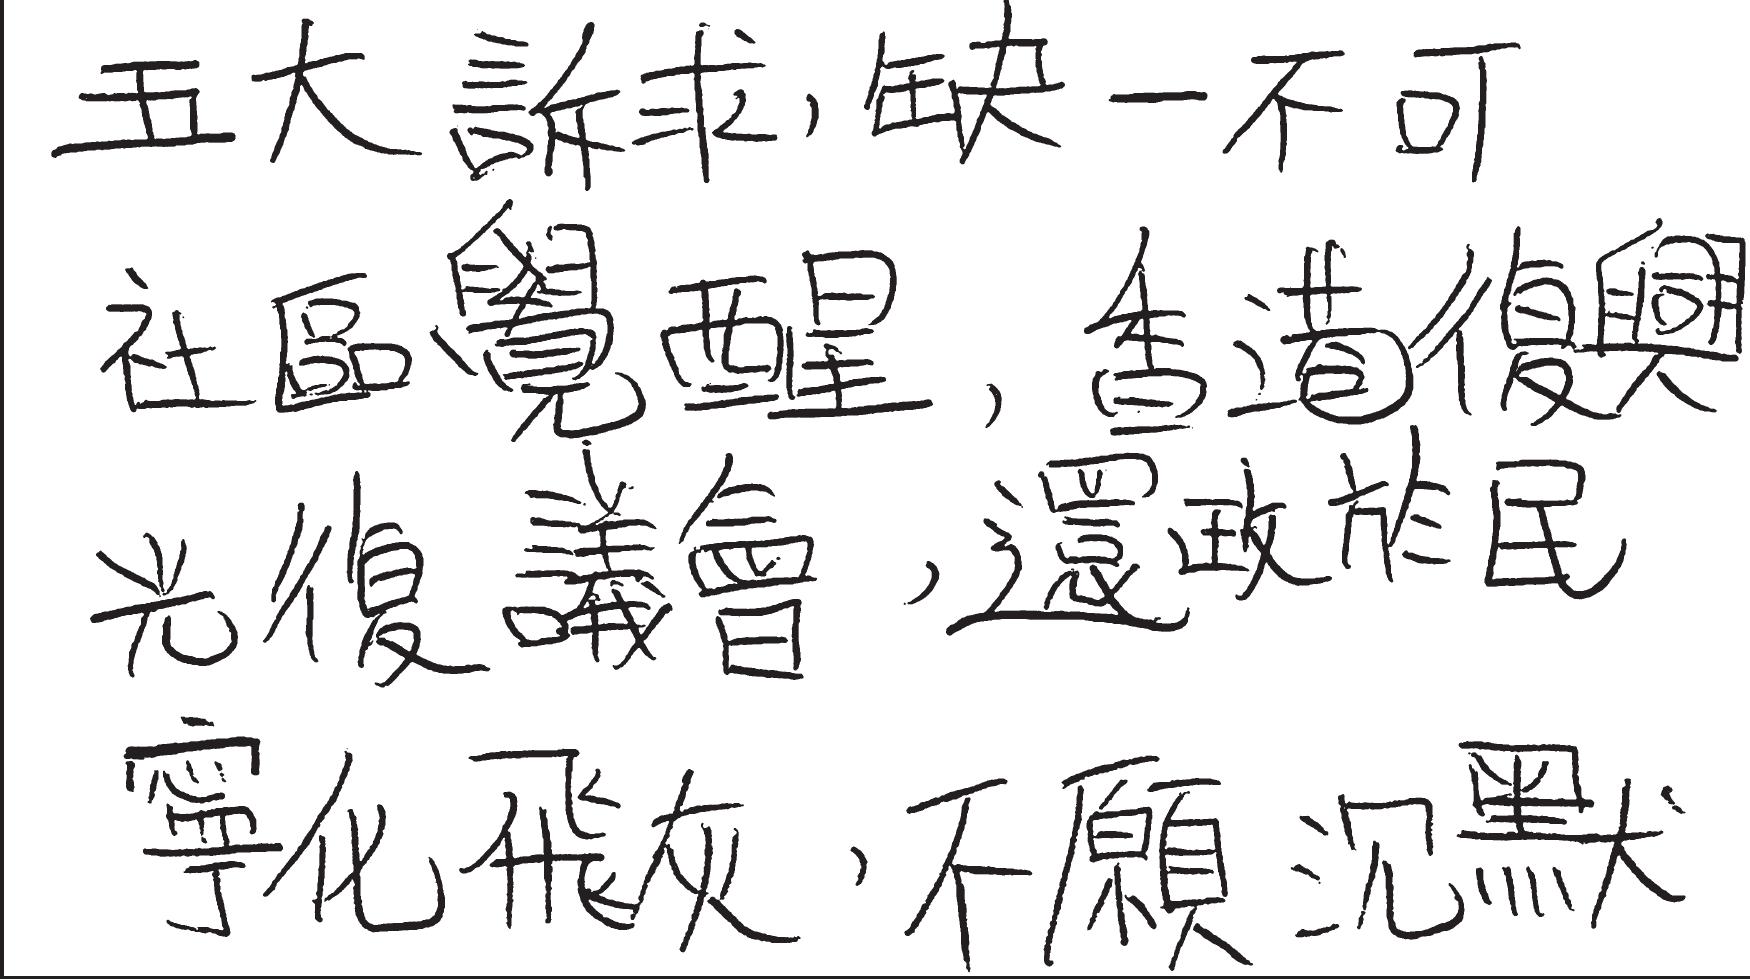 五大訴求，缺一不可
社區覺醒，香造復興
光復議會，還政於民
寧化飛灰，不願沉默